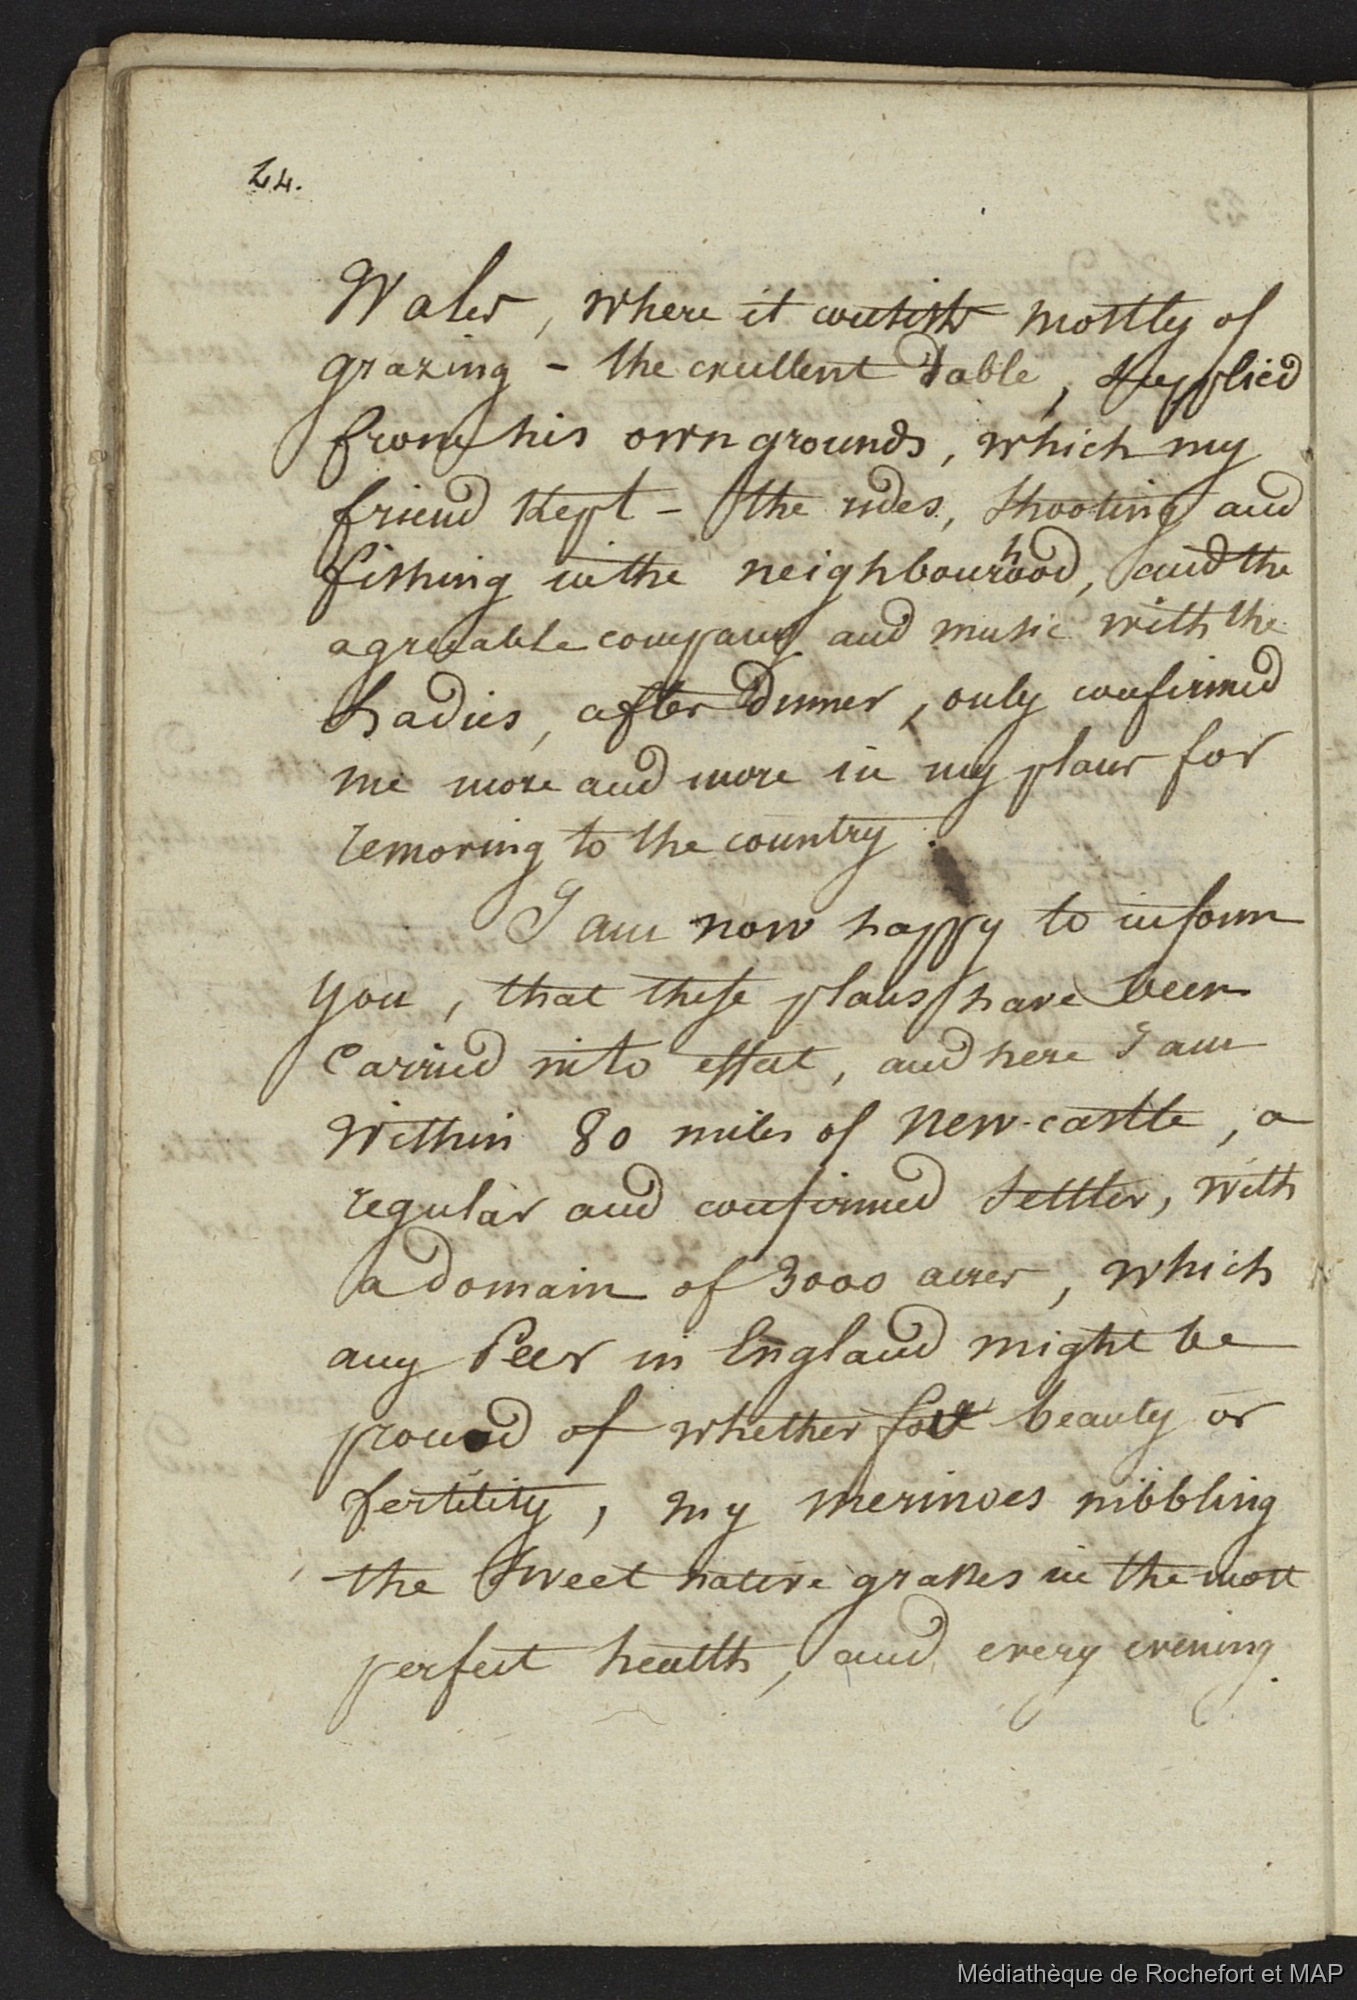 24.
Wales, where it consists mostly of
grazing - the excellent table, supplied
from his own grounds, which my
friend kept - the rides, shooting and
fishing in the neighbourhood, and the
agreeable company and music with the
Ladies, after dinner, only confirmed
me more and more in my plans for
removing to the country.
I am now happy to inform
you, that these plans have been
carried into effect, and here I am
within 80 miles of New-castle, a
regular and confirmed settler, with
a domain of 3000 acres, which
any Peer in England might be
proud of whether for beauty or
fertility, my merinoes nibbling
the sweet native grasses in the most
perfect health, and every evening
Médiathèque de Rochefort et MAP